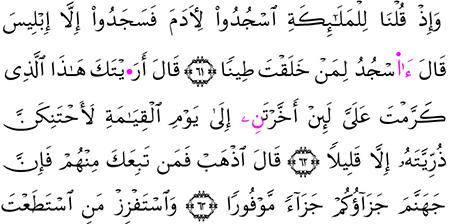 وَإِذْ قُلْنَا لِلْمَلَٰٓئِكَةِ ٱسْجُدُوا۟ لِأَدَمَ فَسَجَدُوٓا۟ إِلَّآ إِبْلِيسَ
قَالَ ءَا۬سْجُدُ لِمَنْ خَلَقْتَ طِينًا ۝٦١ قَالَ أَرَ•يْتَكَ هَٰذَا ٱلَّذِى
كَرَّمْتَ عَلَىَّ لَئِنْ أَخَّرْتَنِۦ إِلَىٰ يَوْمِ ٱلْقِيَٰمَةِ لَأَحْتَنِكَنَّ
ذُرِّيَّتَهُۥٓ إِلَّا قَلِيلًا ۝٦٢ قَالَ ٱذْهَبْ فَمَن تَبِعَكَ مِنْهُمْ فَإِنَّ
جَهَنَّمَ جَزَآؤُكُمْ جَزَآءً مَّوْفُورًا ۝٦٣ وَٱسْتَفْزِزْ مَنِ ٱسْتَطَعْتَ